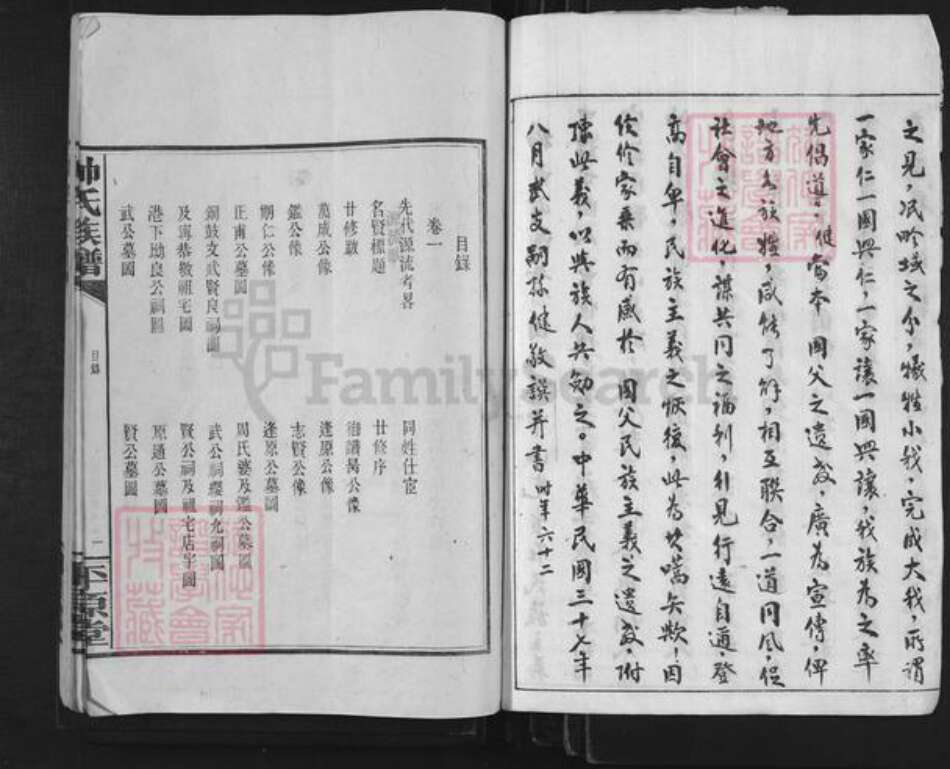 之見，泯畛域之分，犧牲小我，完成大我，所謂
一家仁一國興仁，一家讓一國興讓，我族為之率
先倡道，健當本　國父之遺教，廣為宣傳，俾
地方各族姓，咸能了解，相互聯合，一道同风，促
社會之進化，謀共同之福利，行見行遠自邇，登
高自卑，民族主義之恢復，此為其嚆矢歟！因
修家乘而有感於　國父民族主義之遺教，附
陳此義，以與族人共勉之。中華民國三十七年
八月武支嗣孫健敬譔并書 時年六十二
目錄
卷一
先代源流考畧　同姓仕宦
名賢標題　廿修序
廿修跋　公像
萬成公像　逢原公像
鑑公像　志賢公像
朗仁公像　逢原公墓圖
正甫公墓圖　周氏婆及鑑公墓圖
銅鼓文武賢良祠圖　武公祠纓祠允祠圖
及壽恭敏祖宅圖　賢公祠及祖宅店宇圖
港下坳良公祠圖　原通公墓圖
武公墓圖　賢公墓圖
帥氏族譜
目錄
一
FamilySearch